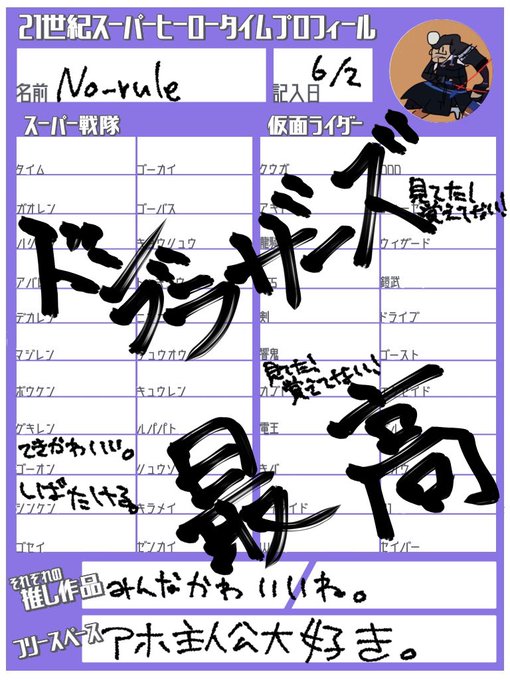 21世紀スーパーヒーロータイムプロフィール
名前 No-rule
記入日 6/2
スーパー戦隊
仮面ライダー
タイム ゴーカイ クウガ OOO
ガオレン ゴーバス
見てたし
覚えてない!
ドンブラザーズ
ウィザード
鎧武
デカレン 剣 ドライブ
マジレン 響鬼 ゴースト
見てた!
覚えてない!
ボウケン キュウレン
ゲキレン ルパパト 電王
てきかわいい。
ゴーオン キバ
しばたける。
シンケン キラメイ
ゴセイ ゼンカイ セイバー
最高
それぞれの
推し作品 みんなかわいいね。
フリースペース アホ主人公大好き。